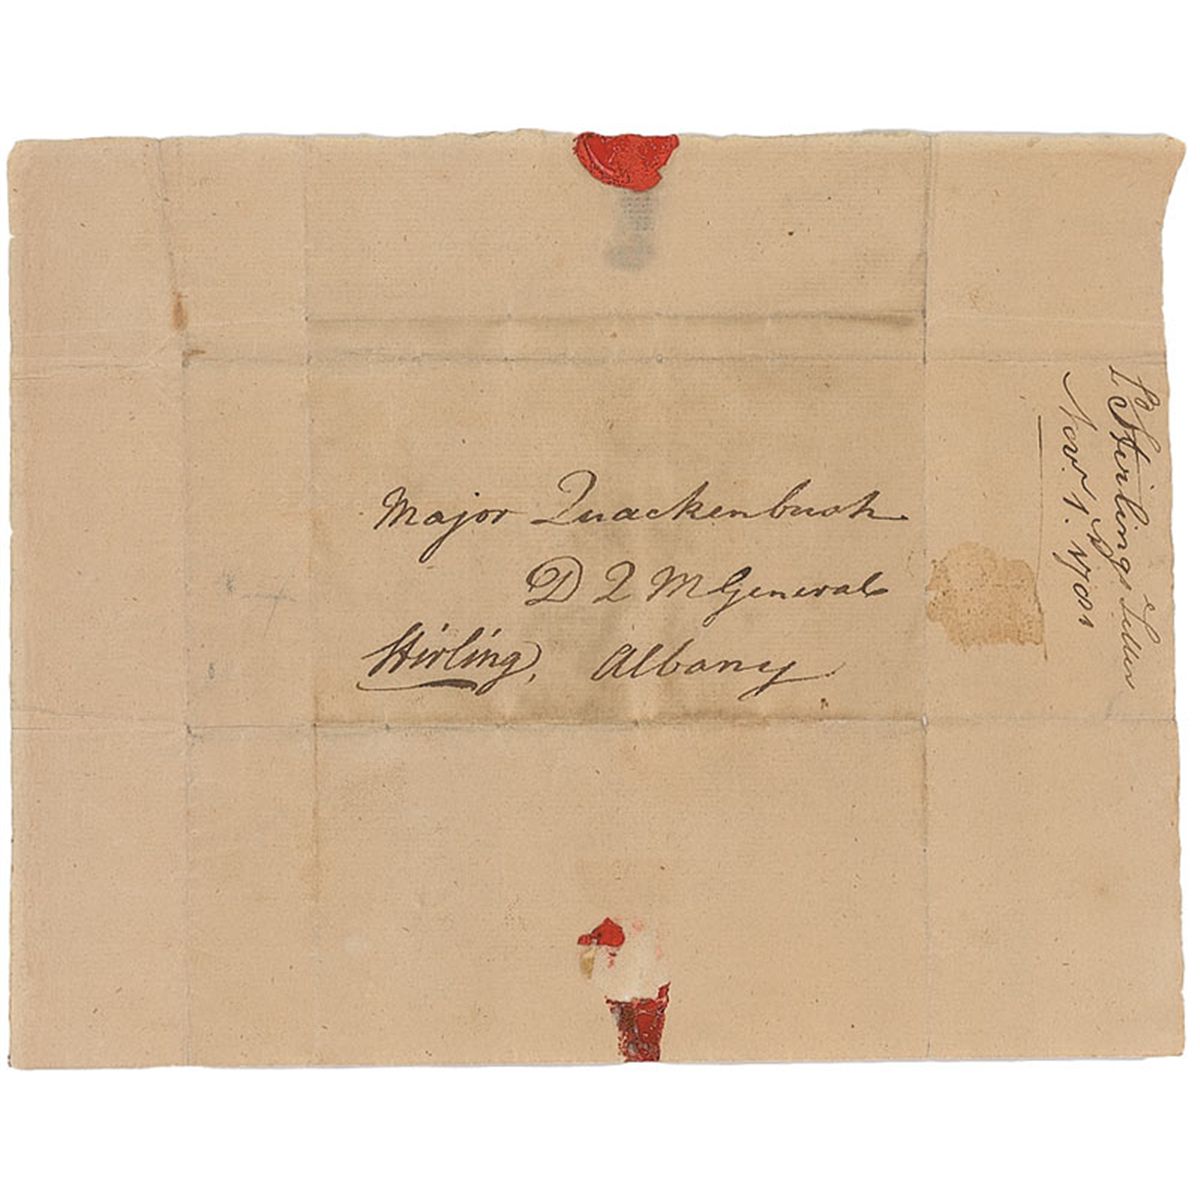 Major Quackenbush
D Q M General
Stirling, Albany
Ld. Stirlings Letter
Nov. 1. 1781